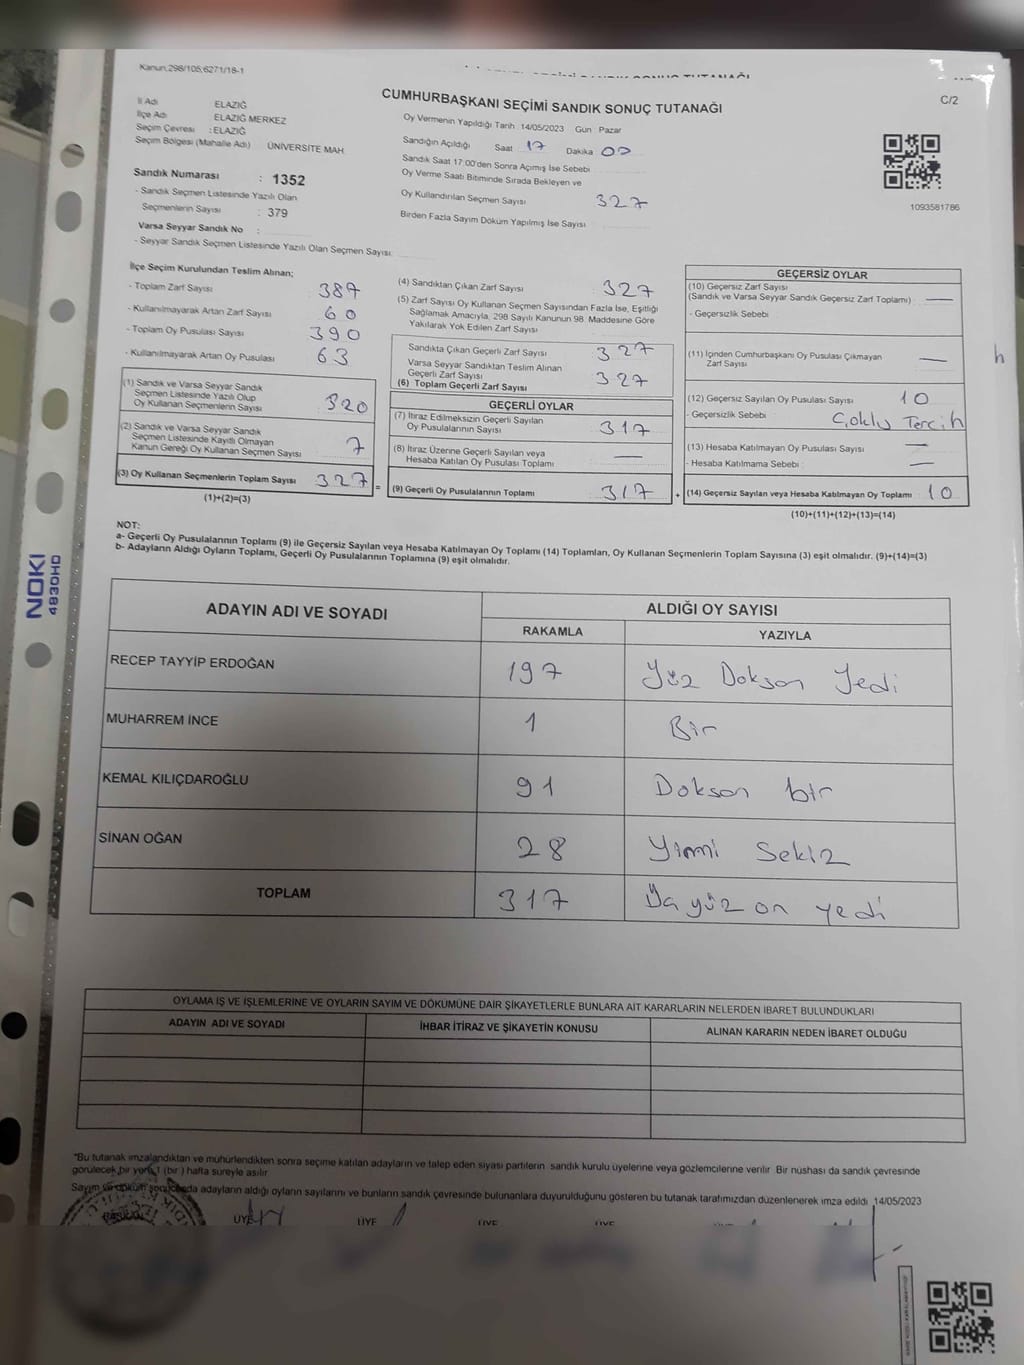 Kanun.298/105;6271/18-1
CUMHURBAŞKANI SEÇİMİ SANDIK SONUÇ TUTANAĞI
C/2
İl Adı ELAZIĞ
İlçe Adı ELAZIĞ MERKEZ
Seçim Çevresi : ELAZIĞ
Seçim Bölgesi (Mahalle Adı) ÜNİVERSİTE MAH.
Sandık Numarası : 1352
- Sandık Seçmen Listesinde Yazılı Olan
Seçmenlerin Sayısı : 379
Varsa Seyyar Sandık No :
- Seyyar Sandık Seçmen Listesinde Yazılı Olan Seçmen Sayısı:
Oy Vermenin Yapıldığı Tarih :14/05/2023 Gün Pazar
Sandığın Açıldığı Saat 17 Dakika 00
Sandık Saat 17:00'den Sonra Açımış İse Sebebi
Oy Verme Saati Bitiminde Sırada Bekleyen ve
Oy Kullandırılan Seçmen Sayısı 327
Birden Fazla Sayım Döküm Yapılmış İse Sayısı
1093581786
İlçe Seçim Kurulundan Teslim Alınan;
- Toplam Zarf Sayısı 387
- Kullanılmayarak Artan Zarf Sayısı 60
- Toplam Oy Pusulası Sayısı 390
- Kullanılmayarak Artan Oy Pusulası 63
(1) Sandık ve Varsa Seyyar Sandık
Seçmen Listesinde Yazılı Olup
Oy Kullanan Seçmenlerin Sayısı 320
(2) Sandık ve Varsa Seyyar Sandık
Seçmen Listesinde Kayıtlı Olmayan
Kanun Gereği Oy Kullanan Seçmen Sayısı 7
(3) Oy Kullanan Seçmenlerin Toplam Sayısı 327 =
(1)+(2)=(3)
(4) Sandıktan Çıkan Zarf Sayısı 327
(5) Zarf Sayısı Oy Kullanan Seçmen Sayısından Fazla İse, Eşitliği
Sağlamak Amacıyla, 298 Sayılı Kanunun 98. Maddesine Göre
Yakılarak Yok Edilen Zarf Sayısı
Sandıkta Çıkan Geçerli Zarf Sayısı 327
Varsa Seyyar Sandıktan Teslim Alınan
Geçerli Zarf Sayısı
(6) Toplam Geçerli Zarf Sayısı 327
GEÇERLİ OYLAR
(7) İtiraz Edilmeksizin Geçerli Sayılan
Oy Pusulalarının Sayısı 317
(8) İtiraz Üzerine Geçerli Sayılan veya
Hesaba Katılan Oy Pusulası Toplamı —
(9) Geçerli Oy Pusulalarının Toplamı 317 +
GEÇERSİZ OYLAR
(10) Geçersiz Zarf Sayısı
(Sandık ve Varsa Seyyar Sandık Geçersiz Zarf Toplamı) —
- Geçersizlik Sebebi
(11) İçinden Cumhurbaşkanı Oy Pusulası Çıkmayan
Zarf Sayısı —
(12) Geçersiz Sayılan Oy Pusulası Sayısı 10
- Geçersizlik Sebebi : Çoklu Tercih
(13) Hesaba Katılmayan Oy Pusulası Sayısı —
- Hesaba Katılmama Sebebi —
(14) Geçersiz Sayılan veya Hesaba Katılmayan Oy Toplamı 10
(10)+(11)+(12)+(13)=(14)
h
NOT:
a- Geçerli Oy Pusulalarının Toplamı (9) ile Geçersiz Sayılan veya Hesaba Katılmayan Oy Toplamı (14) Toplamları, Oy Kullanan Seçmenlerin Toplam Sayısına (3) eşit olmalıdır. (9)+(14)=(3)
b- Adayların Aldığı Oyların Toplamı, Geçerli Oy Pusulalarının Toplamına (9) eşit olmalıdır.
NOKI
4830HD
ADAYIN ADI VE SOYADI ALDIĞI OY SAYISI
RAKAMLA YAZIYLA
RECEP TAYYİP ERDOĞAN 197 Yüz Dokson Yedi
MUHARREM İNCE 1 Bir
KEMAL KILIÇDAROĞLU 91 Dokson bir
SİNAN OĞAN 28 Yirmi Sekiz
TOPLAM 317 Üç yüz on yedi
OYLAMA İŞ VE İŞLEMLERİNE VE OYLARIN SAYIM VE DÖKÜMÜNE DAİR ŞİKAYETLERLE BUNLARA AİT KARARLARIN NELERDEN İBARET BULUNDUKLARI
ADAYIN ADI VE SOYADI İHBAR İTİRAZ VE ŞİKAYETİN KONUSU ALINAN KARARIN NEDEN İBARET OLDUĞU
"Bu tutanak imzalandıktan ve mühürlendikten sonra seçime katılan adayların ve talep eden siyasi partilerin sandık kurulu üyelerine veya gözlemcilerine verilir. Bir nüshası da sandık çevresinde
görülecek bir yere 1 (bir ) hafta süreyle asılır.
Sayım ve döküm sonucunda adayların aldığı oyların sayılarını ve bunların sandık çevresinde bulunanlara duyurulduğunu gösteren bu tutanak tarafımızdan düzenlenerek imza edildi. 14/05/2023
BAŞKAN ÜYE ÜYE ÜYE ÜYE